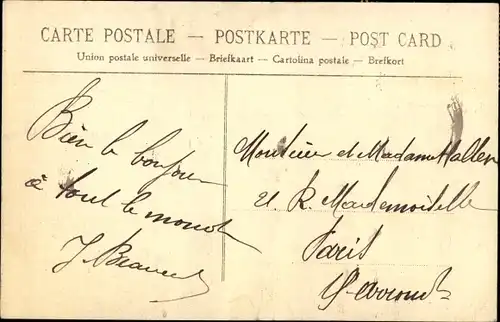 CARTE POSTALE — POSTKARTE — POST CARD
Union postale universelle — Briefkaart — Cartolina postale — Brefkort
Bien le bonjour
à tout le monde
Monsieur et Madame Haller
21 R. Mademoiselle
Paris